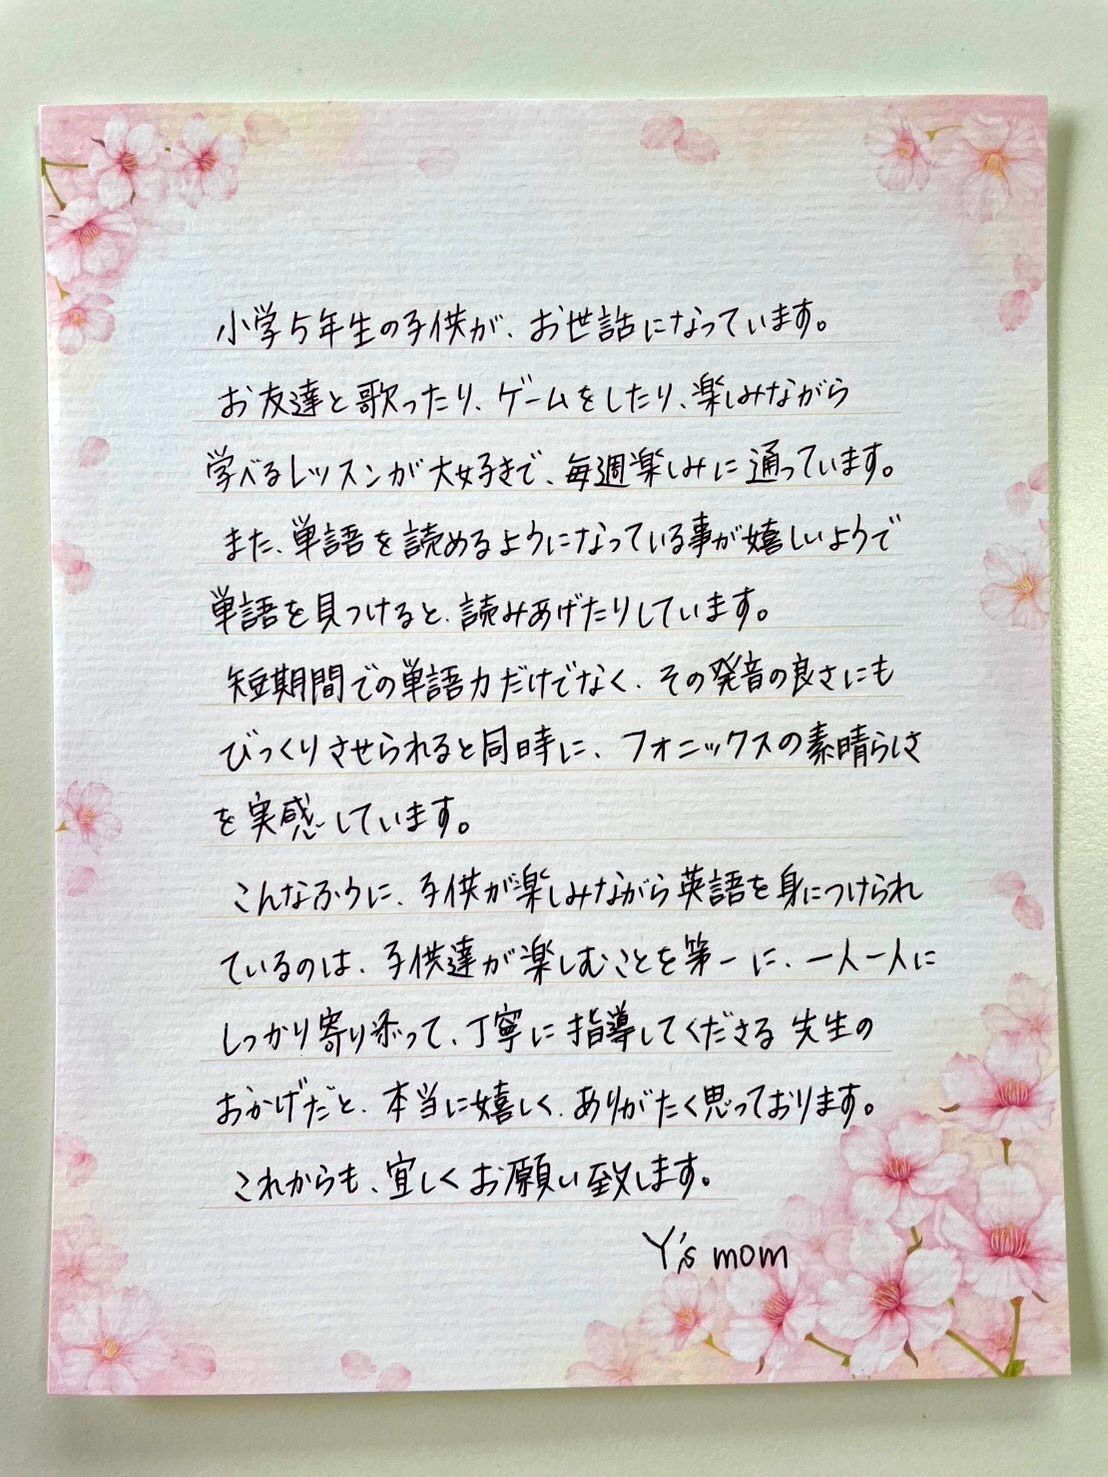 小学5年生の子供が、お世話になっています。
お友達と歌ったり、ゲームをしたり、楽しみながら
学べるレッスンが大好きで、毎週楽しみに通っています。
また、単語を読めるようになっている事が嬉しいようで
単語を見つけると、読みあげたりしています。
短期間での単語力だけでなく、その発音の良さにも
びっくりさせられると同時に、フォニックスの素晴らしさ
を実感しています。
こんなふうに、子供が楽しみながら英語を身につけられ
ているのは、子供達が楽しむことを第一に、一人一人に
しっかり寄り添って、丁寧に指導してくださる先生の
おかげだと、本当に嬉しく、ありがたく思っております。
これからも、宜しくお願い致します。
Y's mom